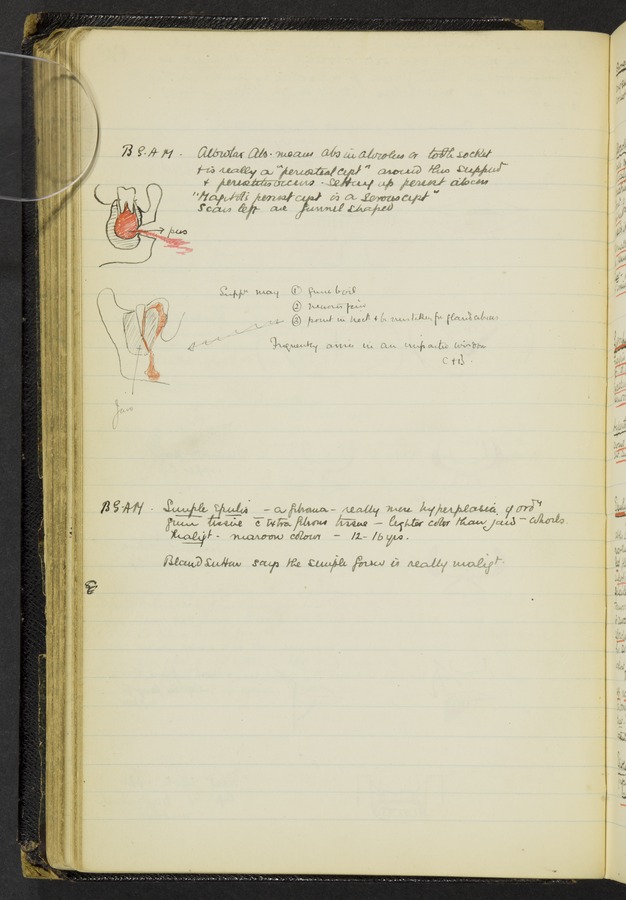 B G. A M. Alveolar Abs. means abs in alveolus or tooth socket
+ is really a "periosteal cyst" around this suppur
+ periostitis occurs - setting up periost abscess
"Magitot's periost cyst is a serous cyst"
Scars left are funnel shaped
→ pus
Supp" may ① gum boil
②
③ point in neck + be mistaken for gland abscess
Frequently arise in an impacted wisdom
C + B.
Jaw
B G. A M. Simple Epulis - a fibroma - really mere hyperplasia of ord"
gum tissue c̄ extra fibrous tissue - lighter color than jaw - whorls.
Maligt. - maroon colour - 12 - 16 yrs.
Bland Sutton says the simple form is really maligt.